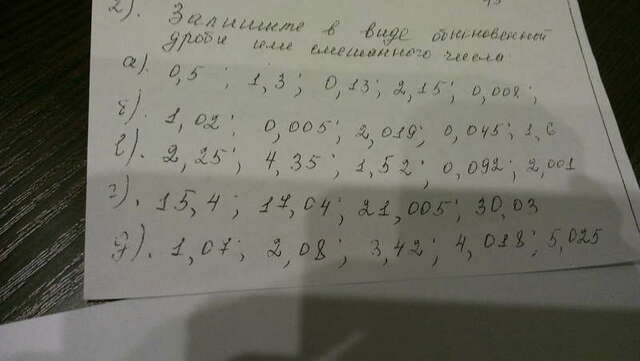 2). Запишите в виде обыкновенной
дроби или смешанного числа
а). 0,5 ; 1,3 ; 0,13 ; 2,15 ; 0,008 ;
б). 1,02 ; 0,005 ; 2,019 ; 0,045 ; 1,6
в). 2,25 ; 4,35 ; 1,52 ; 0,092 ; 2,001
г). 15,4 ; 17,04 ; 21,005 ; 30,03
д). 1,07 ; 2,08 ; 3,42 ; 4,018 ; 5,025